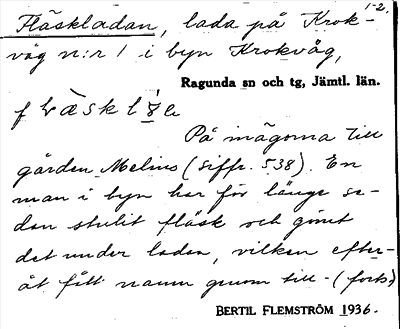 1-2.
Fläskladan, lada på Krok-
våg n:r 1 i byn Krokvåg,
Ragunda sn och tg, Jämtl. län.
På inägorna till
gården Melins (siffr. 538). En
man i byn har för länge se-
dan stulit fläsk och gömt
det under ladan, vilken efter-
åt fått namn genom till- (forts)
BERTIL FLEMSTRÖM 1936.